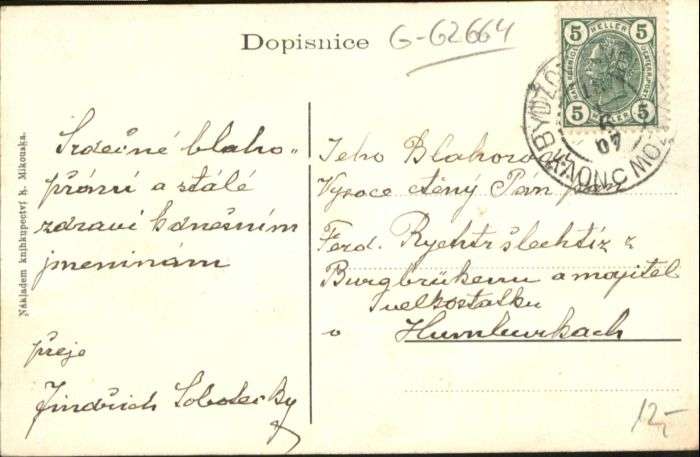 Dopisnice
G-62664
5 HELLER 5
5 HELLER 5
Nákladem knihkupectví K. Mikouska.
Srdečné blaho-
přání a stálé
zdraví k dnešním
jmeninám
přeje
Jindřich Sobotecky
Jeho Blahorodí
Vysoce ctěný Pán pan
Ferd. Rychtr šlechtic z
Burgbrükenu a majitel
velkostatku
v Humburkach
12,-